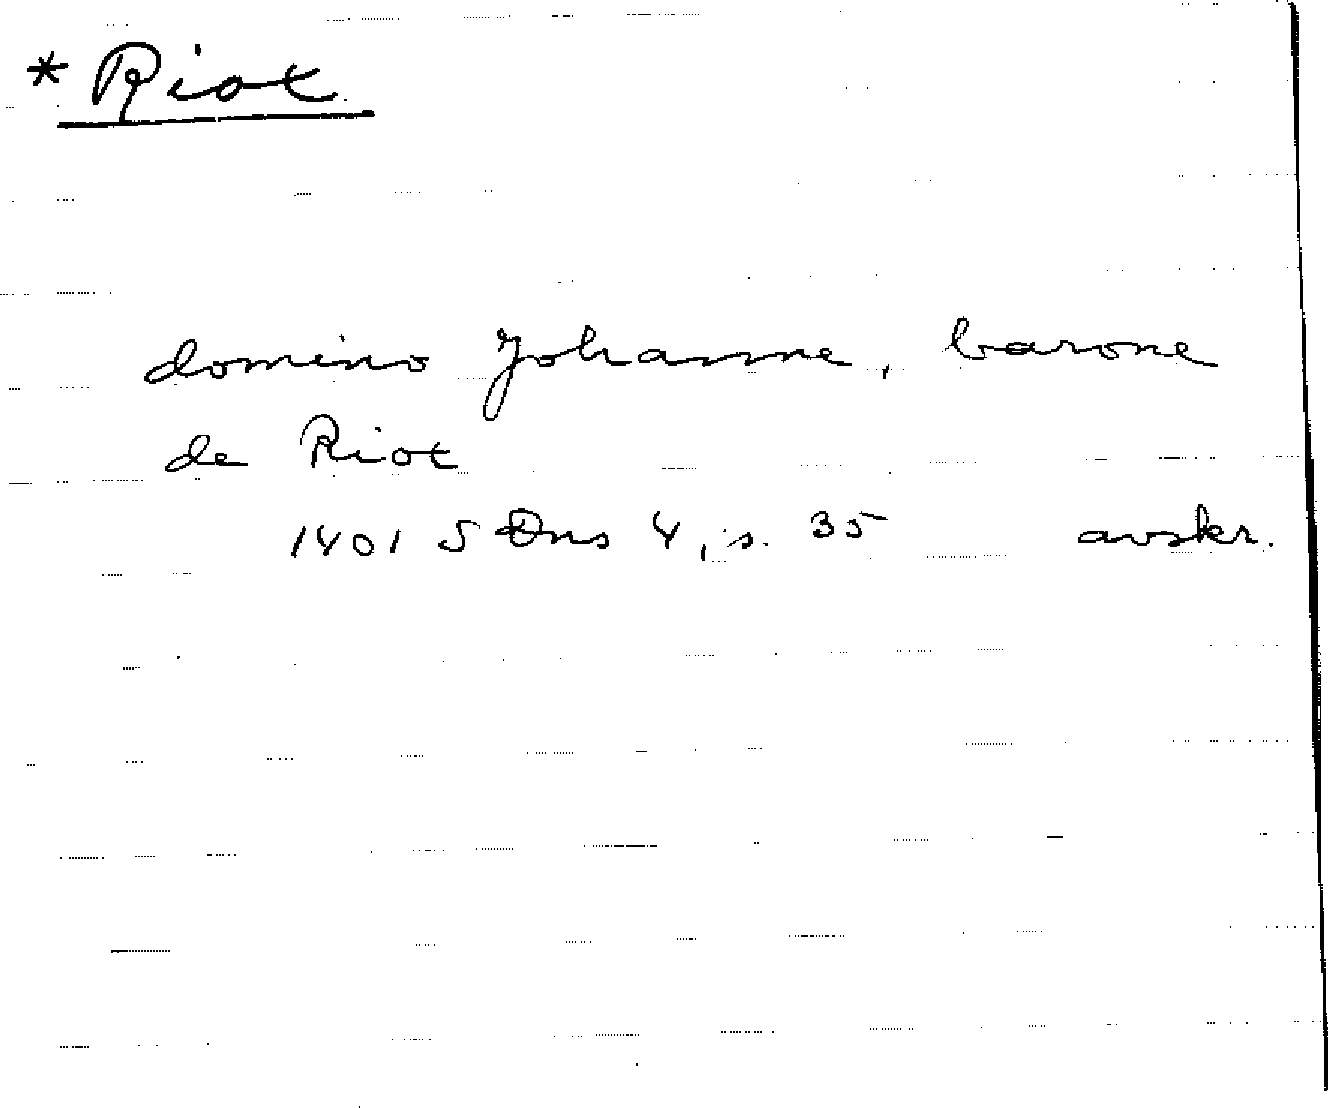 * Riot
domino Johanne, barone
de Riot
1401 S Dns 4, s. 35 avskr.